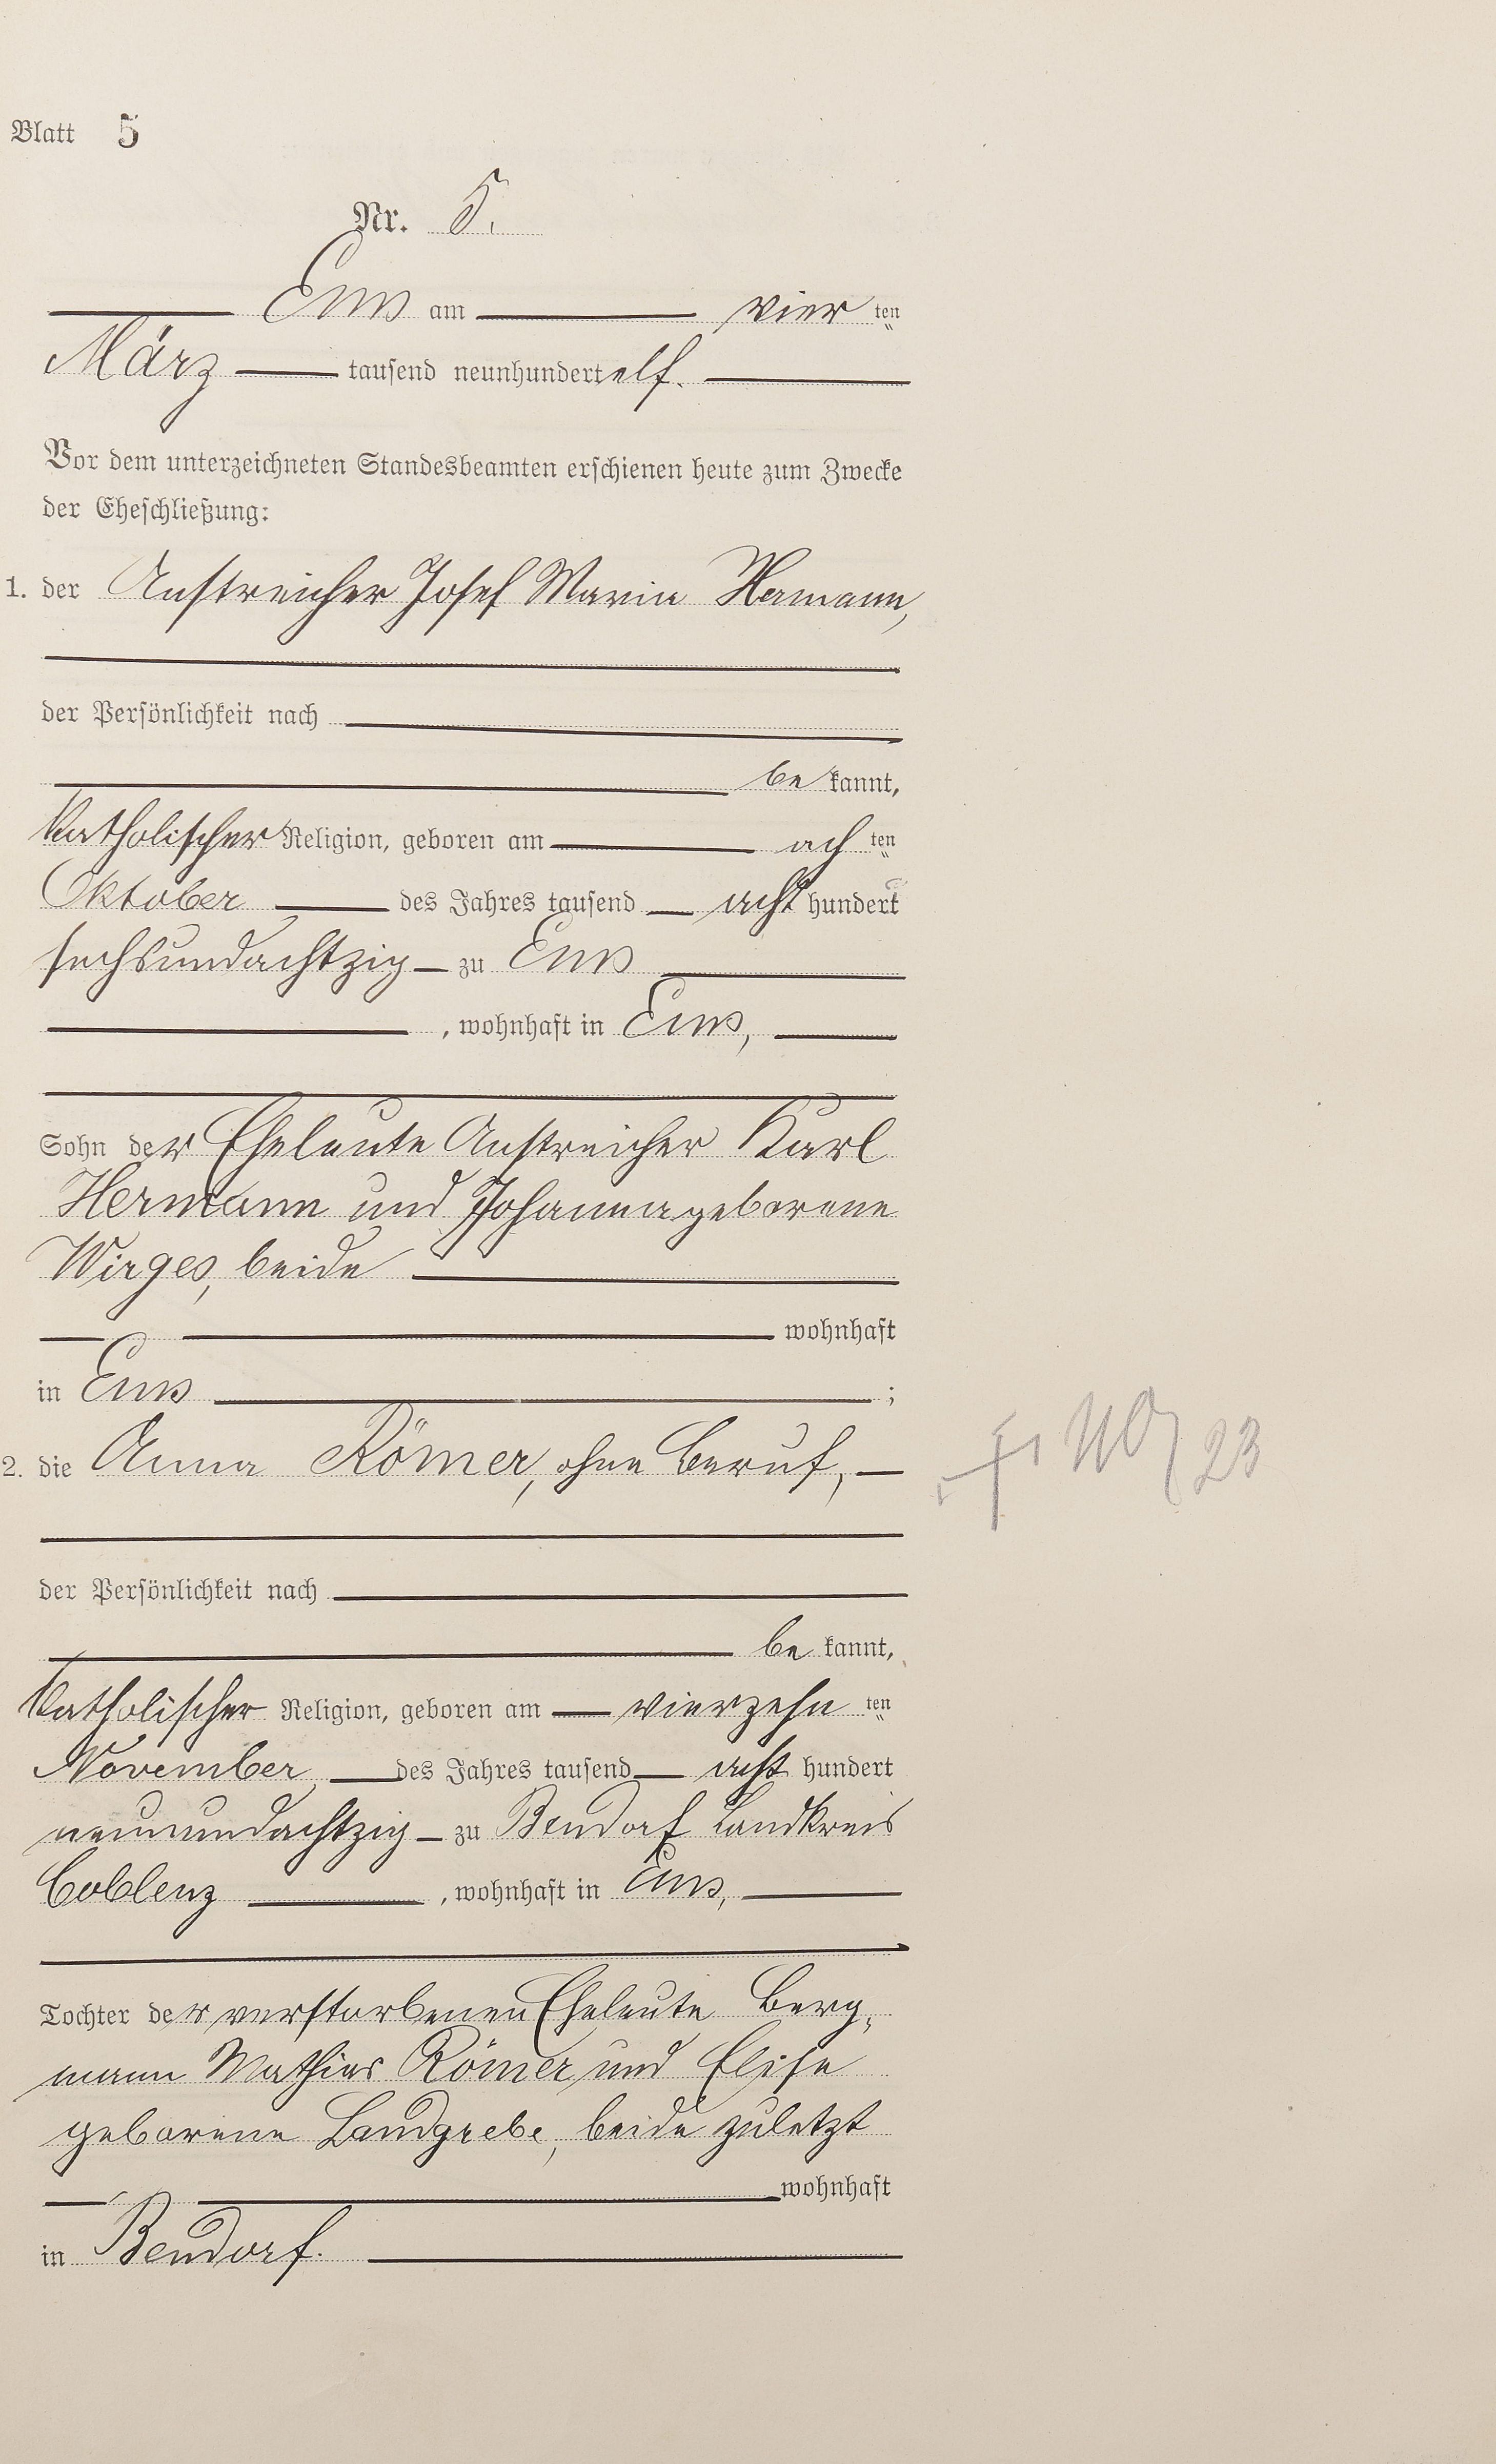 Blatt 5
Nr. 5.
Ems am vier ten
März tausend neunhundertelf.
Vor dem unterzeichneten Standesbeamten erschienen heute zum Zwecke
der Eheschließung:
1. der Anstreicher Josef Maria Hermann,
der Persönlichkeit nach
be kannt,
katholischer Religion, geboren am ach ten
Oktober des Jahres tausend acht hundert
sechsundachtzig zu Ems
, wohnhaft in Ems,
Sohn der Eheleute Anstreicher Karl
Hermann und Johanna geborene
Wirges, beide
wohnhaft
in Ems ;
2. die Anna Römer, ohne Beruf,
der Persönlichkeit nach
be kannt,
katholischer Religion, geboren am vierzehn ten
November des Jahres tausend acht hundert
neunundachtzig zu Bendorf Landkreis
Coblenz , wohnhaft in Ems,
Tochter der verstorbenen Eheleute Berg-
mann Mathias Römer und Elise
geborene Landgrebe, beide zuletzt
wohnhaft
in Bendorf.
23